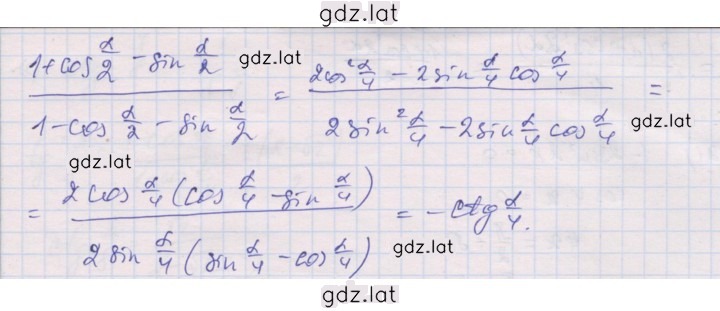 gdz.lat
(1+cos α/2 − sin α/2) / (1−cos α/2 − sin α/2) = (2cos² α/4 − 2sin α/4 cos α/4) / (2sin² α/4 − 2sin α/4 cos α/4) =
gdz.lat
gdz.lat
= (2cos α/4 (cos α/4 − sin α/4)) / (2sin α/4 (sin α/4 − cos α/4)) = −ctg α/4.
gdz.lat
gdz.lat